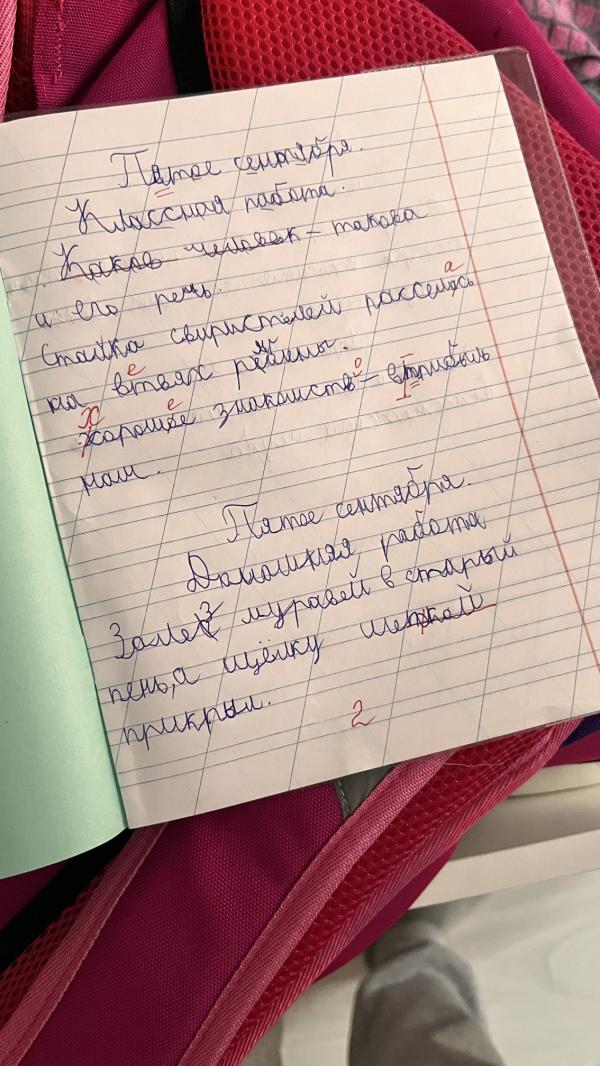 Пятое сентября.
Классная работа.
Каков человек – такова
и его речь.
Стайка свиристелей рассеась
на втвях рябины.
хорошие знакомств – втприбыль
нам.
Пятое сентября.
Домошняя работа
Залез муравей в старый
пень, а щёлку шепкай
прикрыл.
2